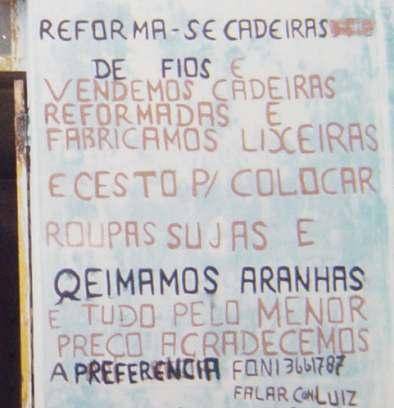 REFORMA-SE CADEIRAS
DE FIOS E
VENDEMOS CADEIRAS
REFORMADAS E
FABRICAMOS LIXEIRAS
E CESTO P/ COLOCAR
ROUPAS SUJAS E
QEIMAMOS ARANHAS
E TUDO PELO MENOR
PREÇO AGRADECEMOS
A PREFERENCIA FONI 3661787
FALAR COM LUIZ